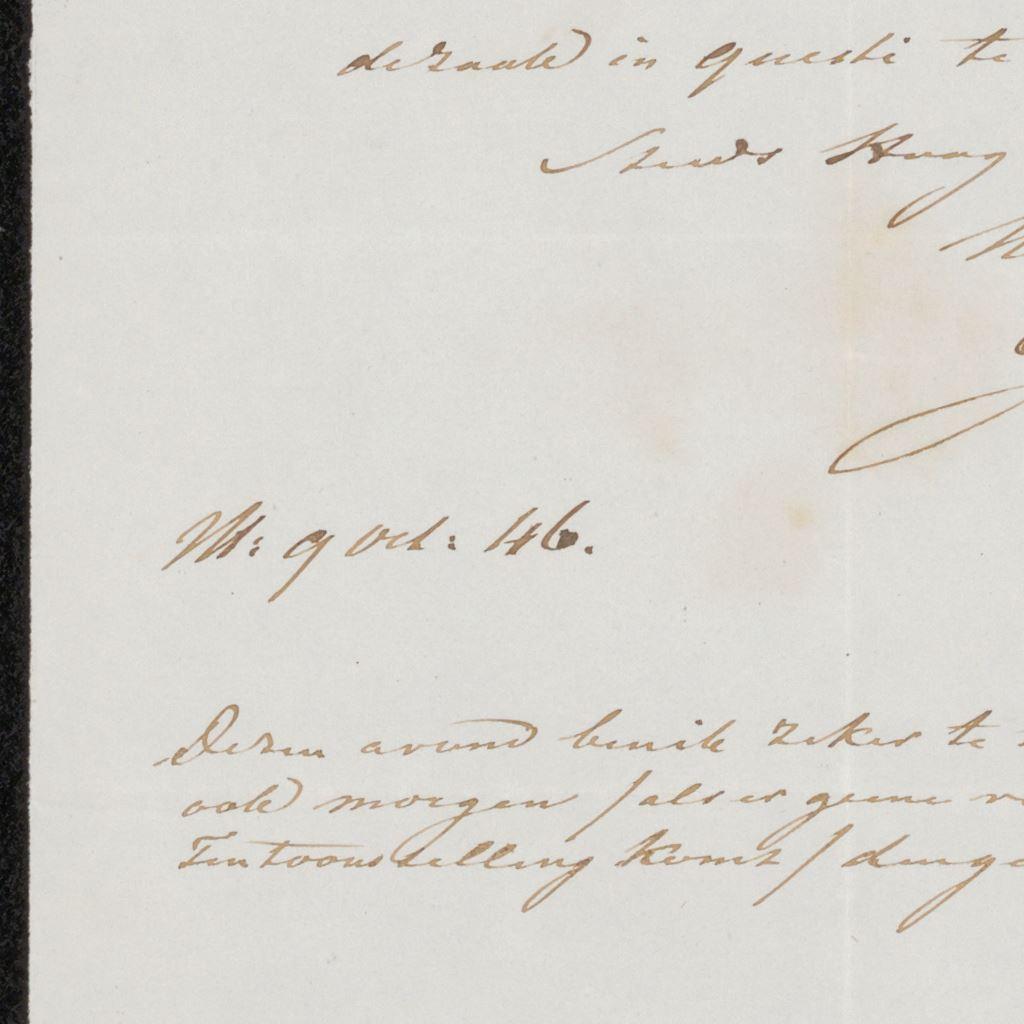 de zaak in questi te
Steeds Hoog
M: 9 Oct: 46.
Dezen avond ben ik zeker te
ook morgen / als er geene
Tentoonstelling komt / den ge